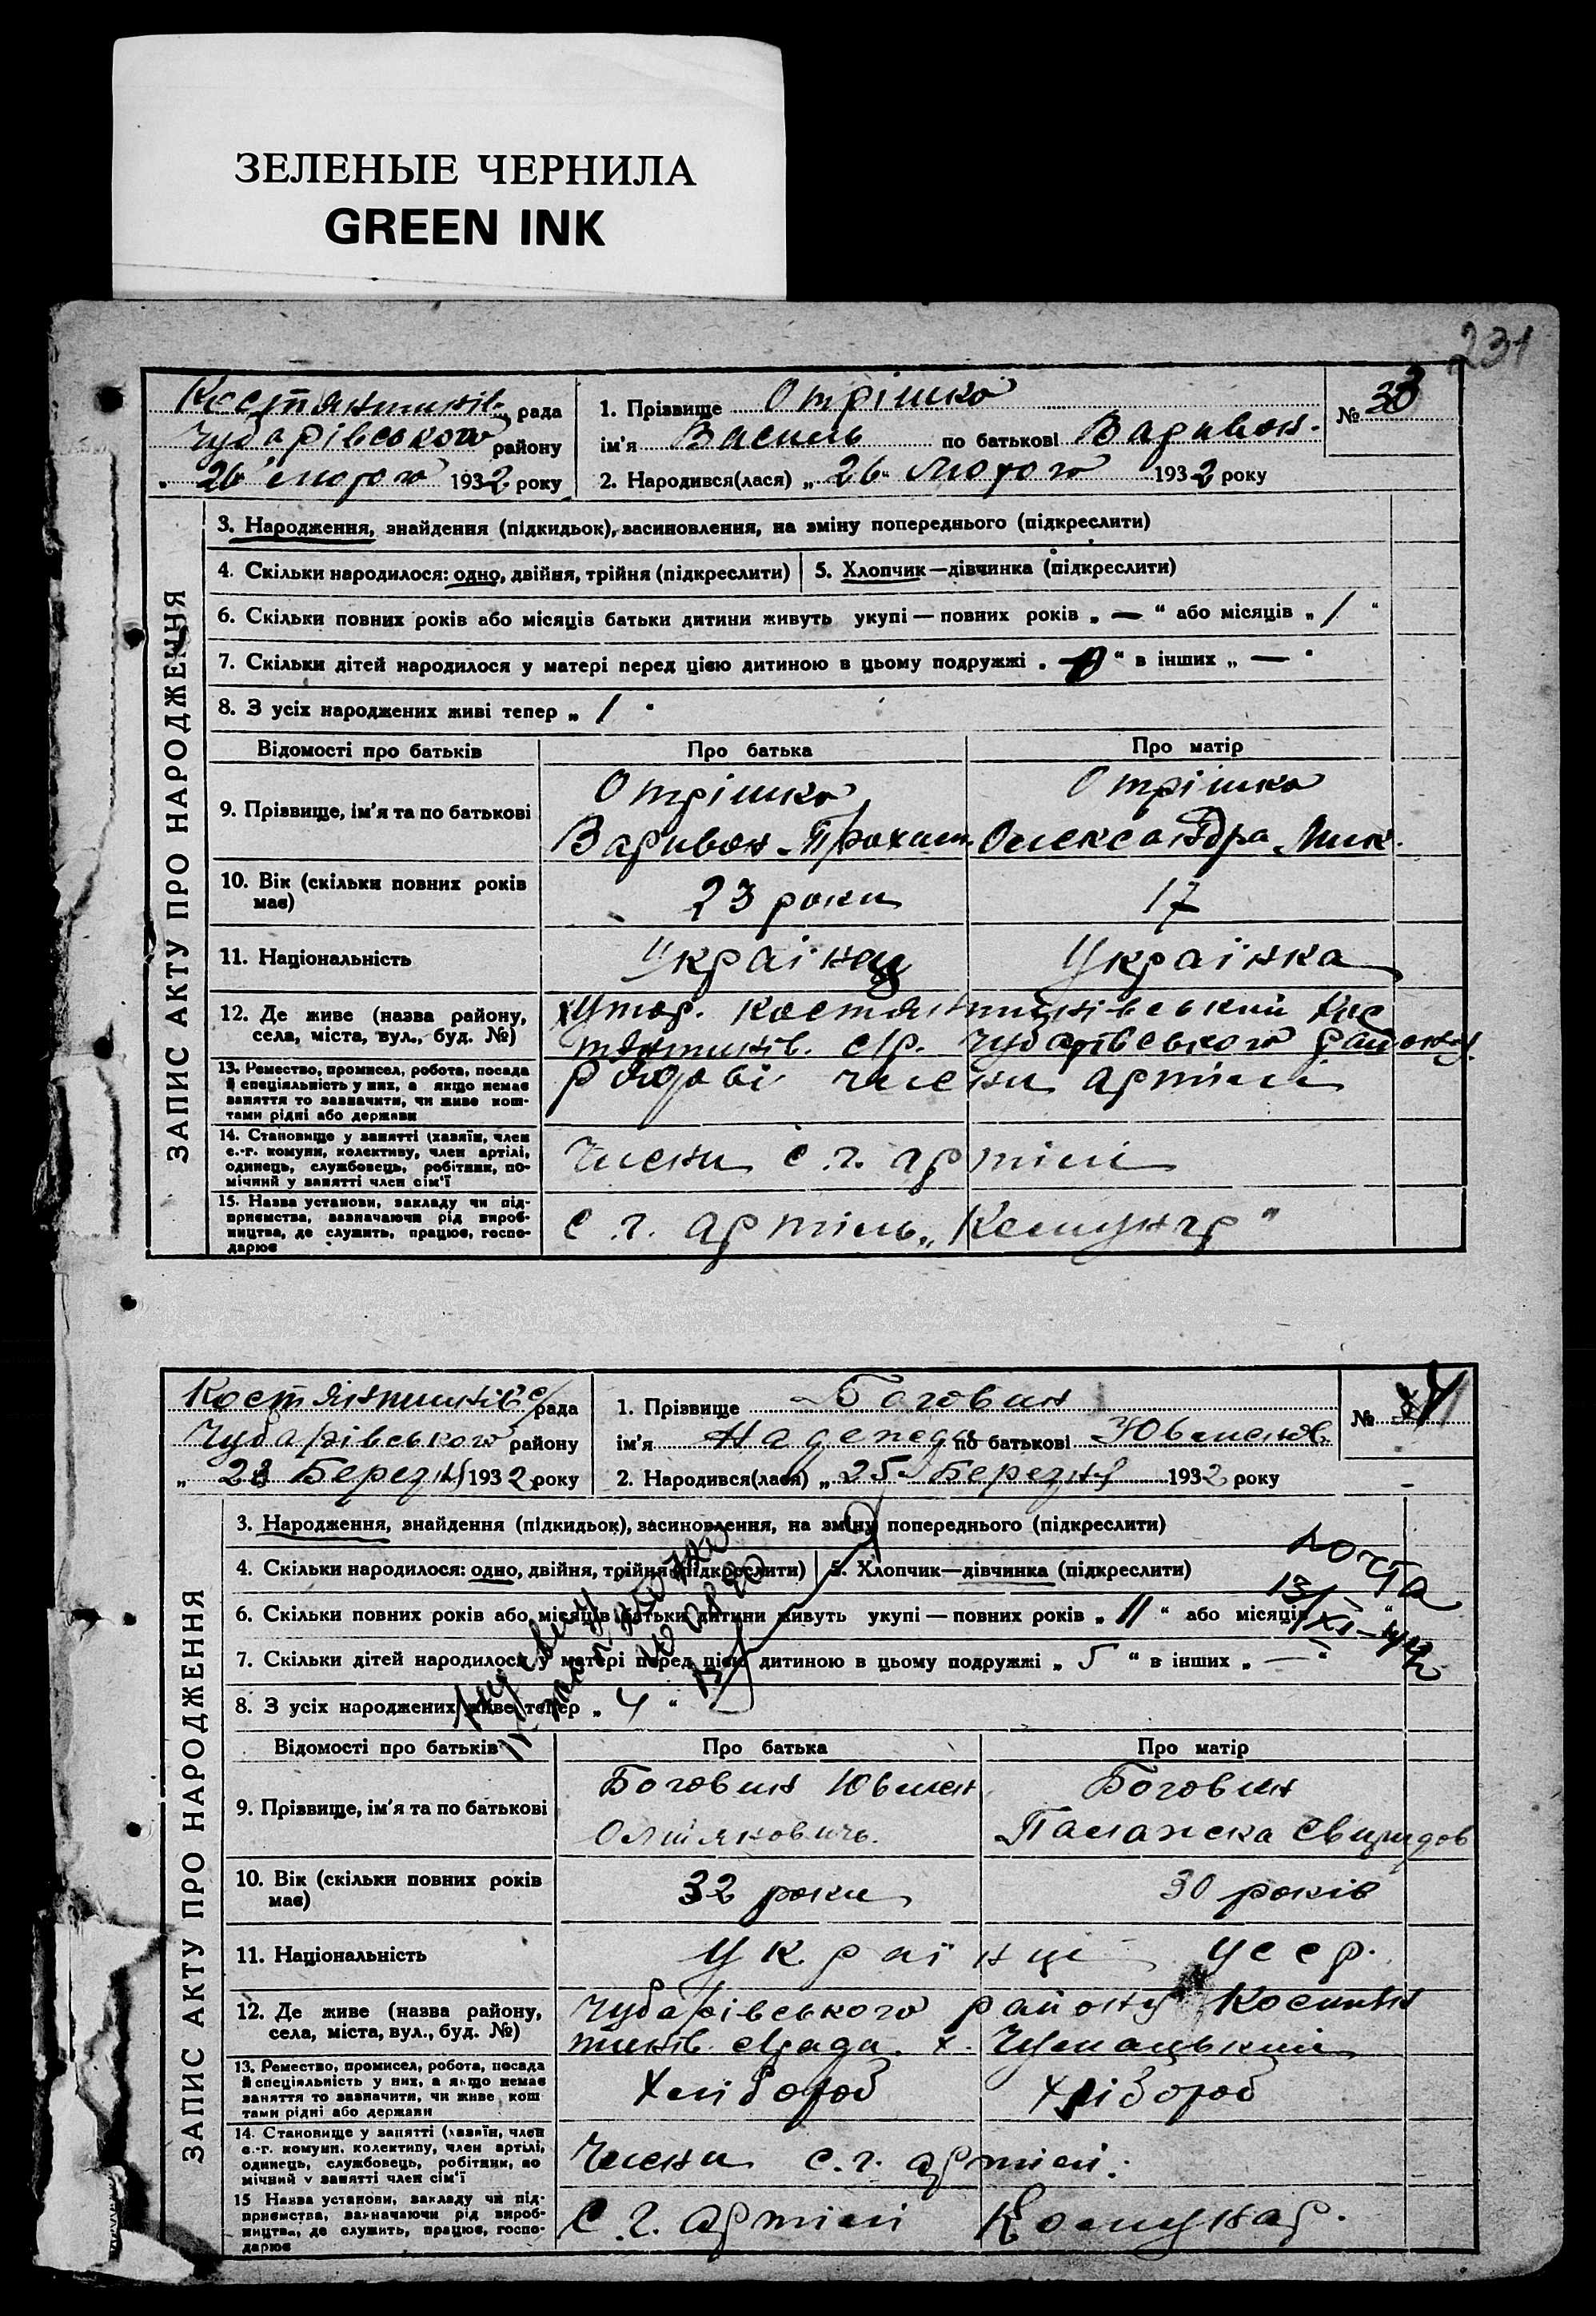 ЗЕЛЕНЫЕ ЧЕРНИЛА
GREEN INK
231
Костянтинів. рада
Чубарівського району
26 лютого 1932 року
1. Прізвище Отрішко
ім'я Василь по батькові Варивон.
2. Народився(лася) „ 26 " лютого 1932 року
№ 33
ЗАПИС АКТУ ПРО НАРОДЖЕННЯ
3. Народження, знайдення (підкидьок), засиновлення, на зміну попереднього (підкреслити)
4. Скільки народилося: одно, двійня, трійня (підкреслити)
5. Хлопчик—дівчинка (підкреслити)
6. Скільки повних років або місяців батьки дитини живуть укупі — повних років „ — “ або місяців „ 1 “
7. Скільки дітей народилося у матері перед цією дитиною в цьому подружжі „ 0 “ в інших „ — “
8. З усіх народжених живі тепер „ 1 “
Відомості про батьків Про батька Про матір
9. Прізвище, ім'я та по батькові
Отрішко Варивон Прохим.
Отрішко Олександра Мик.
10. Вік (скільки повних років має) 23 роки 17
11. Національність Українец Українка
12. Де живе (назва району, села, міста, вул., буд. №)
Хутор. Костянтинівський Кос
тянтинів. с/р. Чубарівського району
13. Ремество, промисел, робота, посада й спеціяльність у них, а якщо немає заняття то зазначити, чи живе коштами рідні або держави
рядові члени артілі
14. Становище у занятті (хазяїн, член с.-г. комуни, колективу, член артілі, одинець, службовець, робітник, помічний у занятті член сім'ї
Члени с.г. артілі
15. Назва установи, закладу чи підприємства, зазначаючи рід виробництва, де служить, працює, господарює
с.г. артіль „Комунар"
Костянтинів с/рада
Чубарівського району
„ 28 Березня 1932 року
1. Прізвище Боговин
ім'я Надежда по батькові Ювменов.
2. Народився(лася) „ 25 " Березня 1932 року
№ 41
ЗАПИС АКТУ ПРО НАРОДЖЕННЯ
3. Народження, знайдення (підкидьок), засиновлення, на зміну попереднього (підкреслити)
4. Скільки народилося: одно, двійня, трійня (підкреслити)
5. Хлопчик—дівчинка (підкреслити)
почта
6. Скільки повних років або місяців батьки дитини живуть укупі — повних років „ 11 “ або місяців
7. Скільки дітей народилося у матері перед цією дитиною в цьому подружжі „ 5 “ в інших „ — “
8. З усіх народжених живе тепер „ 4 “
Відомості про батьків Про батька Про матір
9. Прізвище, ім'я та по батькові
Боговин Ювмен
Боговин
Палажска Свиридов
10. Вік (скільки повних років має) 32 роки 30 років
11. Національність Українці УССР.
12. Де живе (назва району, села, міста, вул., буд. №)
Чубарівського району Костян
тинів. с/рада. х. Чумацький
13. Ремество, промисел, робота, посада й спеціяльність у них, а якщо немає заняття то зазначити, чи живе кош тами рідні або держави
Хлібороб Хлібороб
14. Становище у занятті (хазяїн, член с.-г. комуни, колективу, член артілі, одинець, службовець, робітник, по мічний у занятті член сім'ї
Члени с.г. артілі.
15 Назва установи, закладу чи підприємства, зазначаючи рід виробництва, де служить, працює, господарює
С.г. артілі Комунар.